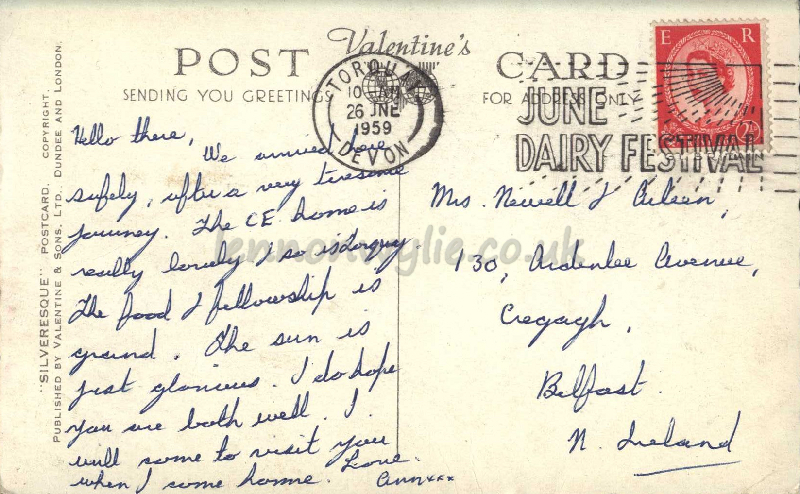 POST Valentine's CARD
SENDING YOU GREETINGS
FOR ADDRESS ONLY
"SILVERESQUE" POSTCARD. COPYRIGHT.
PUBLISHED BY VALENTINE & SONS, LTD., DUNDEE AND LONDON.
E R
TORQUAY
26 JNE
1959
DEVON
JUNE
DAIRY FESTIVAL
Hello there,
We arrived here
safely, after a very tiresome
journey. The C.E. home is
really lovely & so is Torquay.
The food & fellowship is
grand. The sun is
just glorious. I do hope
you are both well. I
will come to visit you
when I come home. Love
Ann xxx
Mrs. Newell & Eileen,
130, Ardenlee Avenue,
Cregagh,
Belfast.
N. Ireland
lennonwylie.co.uk